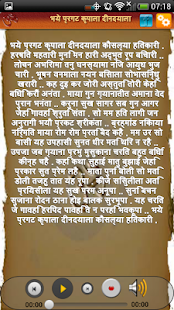 07:18
भये प्रगट कृपाला दीनदयाला
भये प्रगट कृपाला दीनदयाला कौसल्या हितकारी .
हरषित महतारी मुनि मन हारी अद्भुत रूप बिचारी ..
लोचन अभिरामा तनु घनस्यामा निज आयुध भुज
चारी . भूषन वनमाला नयन बिसाला सोभासिन्धु
खरारी .. कह दुइ कर जोरी अस्तुति तोरी केहि
बिधि करौं अनंता . माया गुन ग्यानातीत अमाना वेद
पुरान भनंता .. करुना सुख सागर सब गुन आगर
जेहि गावहिं श्रुति संता . सो मम हित लागी जन
अनुरागी भयौ प्रकट श्रीकंता .. ब्रह्मांड निकाया
निर्मित माया रोम रोम प्रति बेद कहै . मम उर सो
बासी यह उपहासी सुनत धीर मति थिर न रहै ..
उपजा जब ग्याना प्रभु मुसुकाना चरित बहुत बिधि
कीन्ह चहै . कहि कथा सुहाई मातु बुझाई जेहि
प्रकार सुत प्रेम लहै .. माता पुनि बोली सो मति
डोली तजहु तात यह रूपा . कीजे सिसुलीला अति
प्रियसीला यह सुख परम अनूपा .. सुनि बचन
सुजाना रोदन ठाना होइ बालक सुरभूपा . यह चरित
जे गावहि हरिपद पावहि ते न परहिं भवकूपा ..
भये प्रगट कृपाला दीनदयाला कौसल्या हितकारी .
00:00
00:00